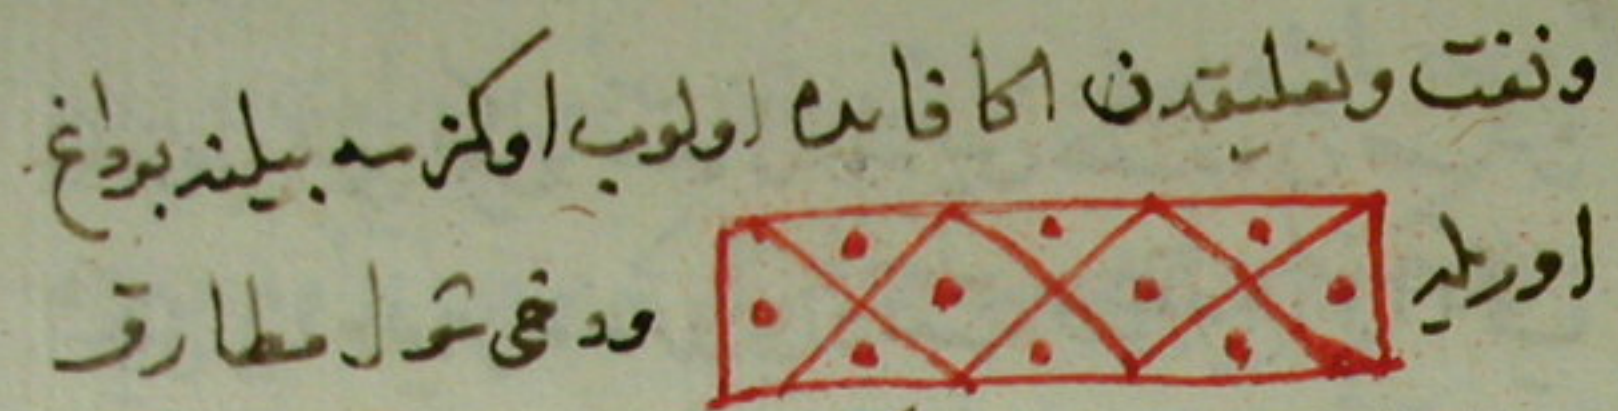 ونفت وتعليقدن اكا فايده اولوب اوكزسه بيلنه بوداغ
اوريله ودخى شول مطارق